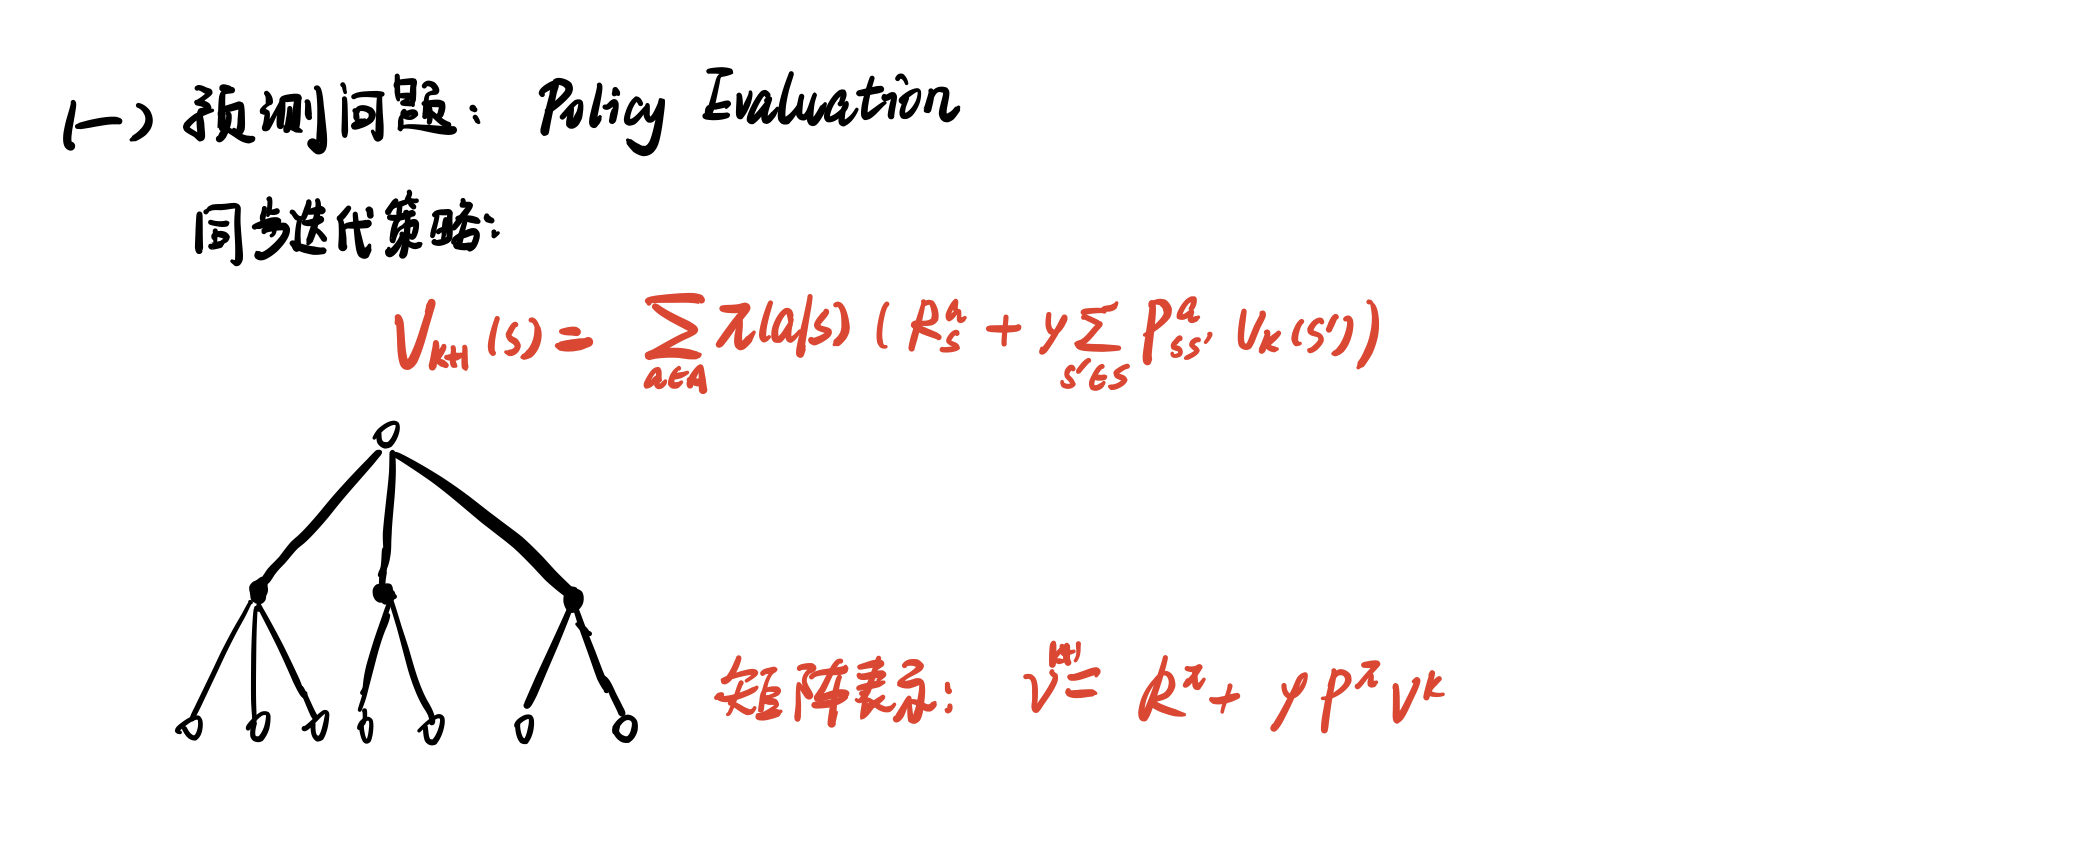 (一) 预测问题: Policy Evaluation
同步迭代策略:
V_{k+1}(s) = \sum_{a∈A} π(a|s) ( R_s^a + γ \sum_{s'∈S} P_{ss'}^a V_k(s') )
矩阵表示: V^{k+1} = R^π + γ P^π V^k